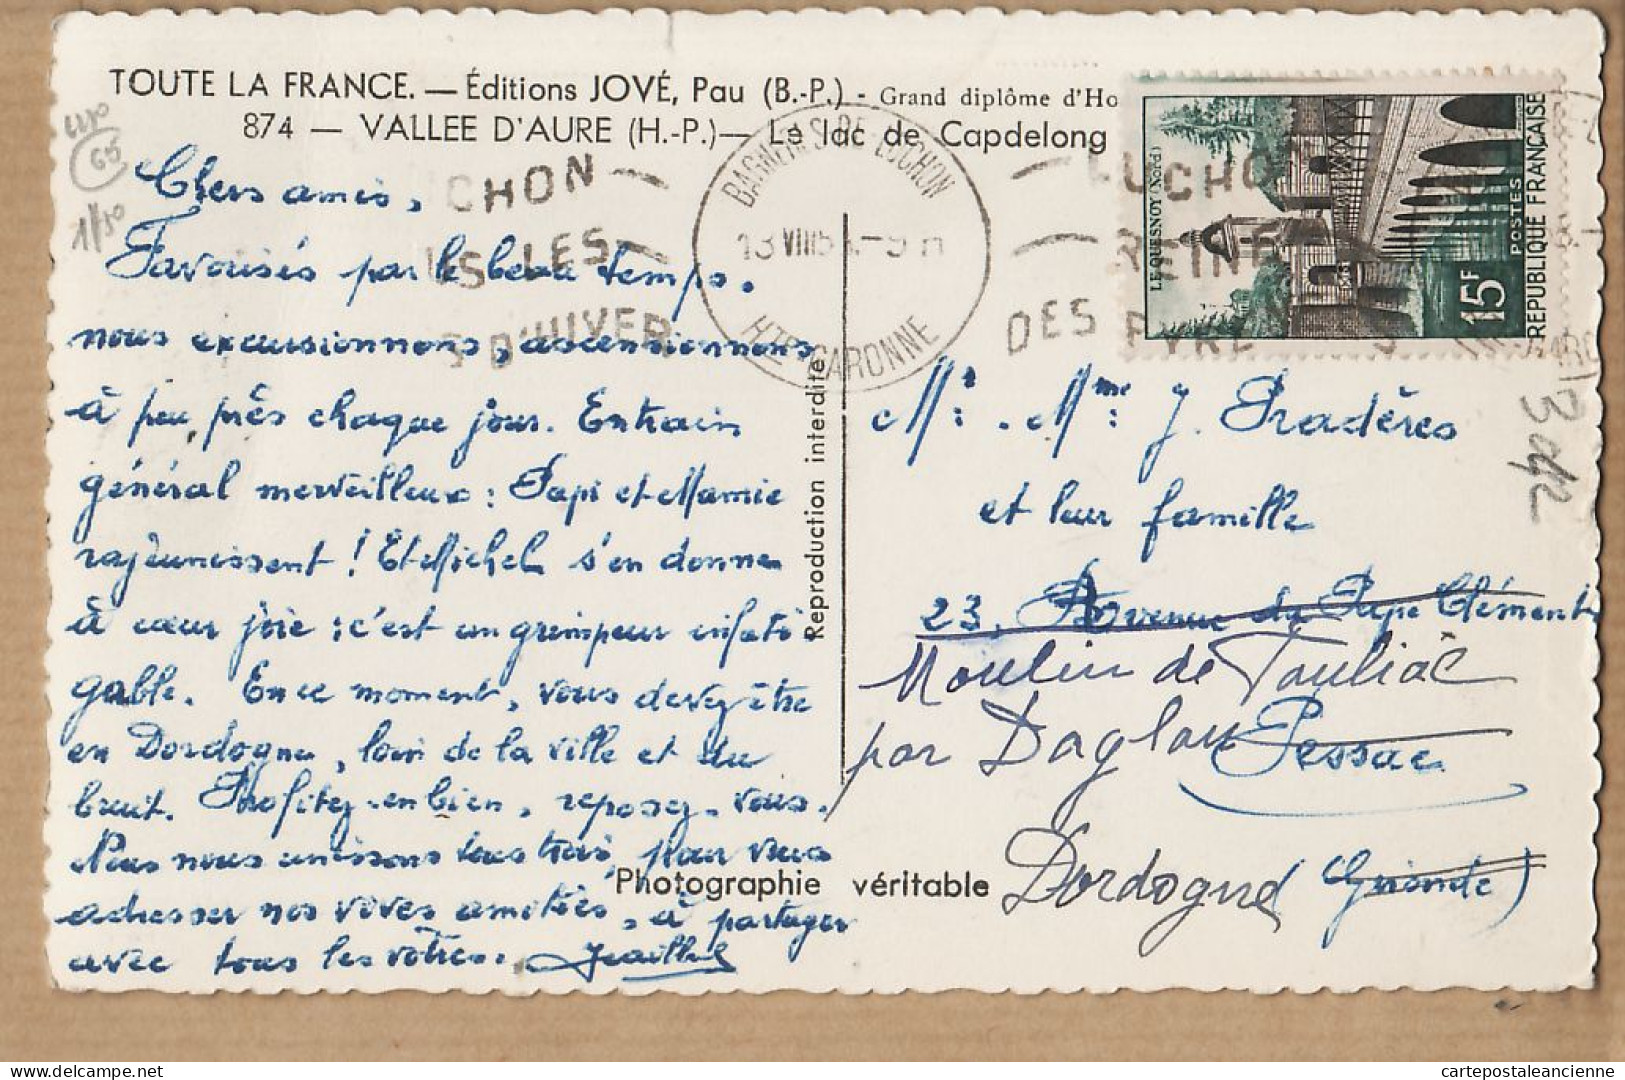 TOUTE LA FRANCE. — Éditions JOVÉ, Pau (B.-P.) - Grand diplôme d'Ho
874 — VALLEE D'AURE (H.-P.) — Le lac de Capdelong
65
Chers amis,
Favorisés par le beau temps.
nous excursionnons, ascensionnons
à peu près chaque jour. Entrain
général merveilleux : Papi et Mamie
rajeunissent ! Et Michel s'en donne
à cœur joie : c'est un grimpeur infati
gable. En ce moment, vous devez être
en Dordogne, loin de la ville et du
bruit. Profitez-en bien, reposez-vous.
Nous nous unissons tous trois pour vous
adresser nos vives amitiés, à partager
avec tous les vôtres.
Reproduction interdite
Photographie véritable
BAGNERES-DE-LUCHON
13 VIII 5 -9 H
HTE GARONNE
CHON
LES
D'HIVER
LUCHON
REINE
DES PYRENEES
LE QUESNOY (Nord)
15F
POSTES
REPUBLIQUE FRANÇAISE
Mr. Mme J. Pradères
et leur famille
23, Avenue du Pape Clément
Moulin de Touliac
par Daglan
Pessac
Dordogne
(Gironde)
cartepostaleancienne
the-PostCard.com